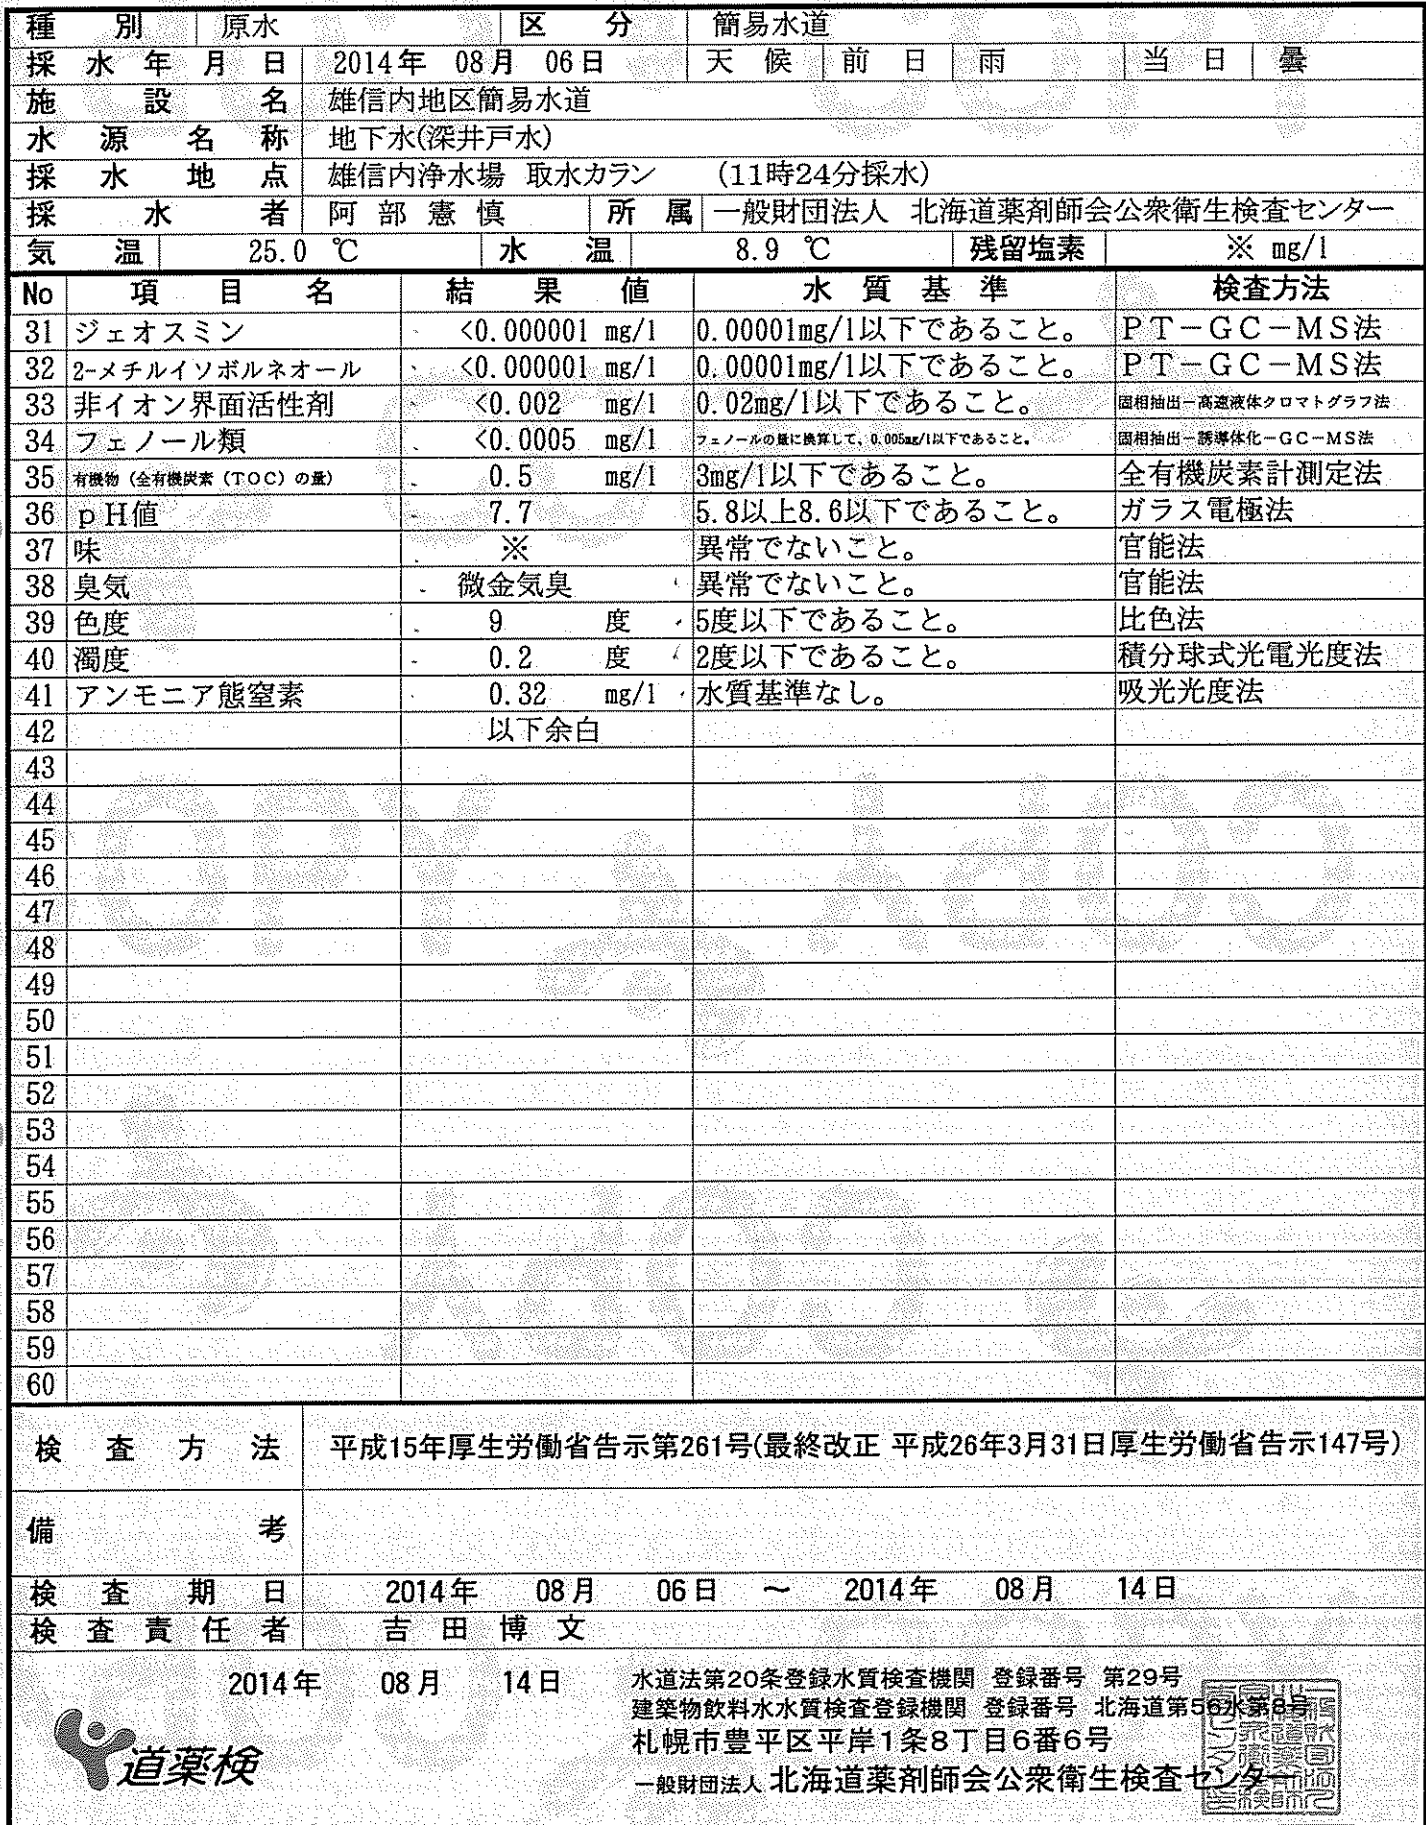 種別 原水 区分 簡易水道
採水年月日 2014年 08月 06日 天候 前日 雨 当日 曇
施設名 雄信内地区簡易水道
水源名称 地下水(深井戸水)
採水地点 雄信内浄水場 取水カラン (11時24分採水)
採水者 阿部憲慎 所属 一般財団法人 北海道薬剤師会公衆衛生検査センター
気温 25.0 ℃ 水温 8.9 ℃ 残留塩素 ※ mg/l
No 項目名 結果値 水質基準 検査方法
31 ジェオスミン <0.000001 mg/l 0.00001mg/l以下であること。 PT-GC-MS法
32 2-メチルイソボルネオール <0.000001 mg/l 0.00001mg/l以下であること。 PT-GC-MS法
33 非イオン界面活性剤 <0.002 mg/l 0.02mg/l以下であること。 固相抽出-高速液体クロマトグラフ法
34 フェノール類 <0.0005 mg/l フェノールの量に換算して、0.005mg/l以下であること。 固相抽出-誘導体化-GC-MS法
35 有機物(全有機炭素(TOC)の量) 0.5 mg/l 3mg/l以下であること。 全有機炭素計測定法
36 pH値 7.7 5.8以上8.6以下であること。 ガラス電極法
37 味 ※ 異常でないこと。 官能法
38 臭気 微金気臭 異常でないこと。 官能法
39 色度 9 度 5度以下であること。 比色法
40 濁度 0.2 度 2度以下であること。 積分球式光電光度法
41 アンモニア態窒素 0.32 mg/l 水質基準なし。 吸光光度法
42 以下余白
43
44
45
46
47
48
49
50
51
52
53
54
55
56
57
58
59
60
検査方法 平成15年厚生労働省告示第261号(最終改正 平成26年3月31日厚生労働省告示147号)
備考
検査期日 2014年 08月 06日 ~ 2014年 08月 14日
検査責任者 吉田博文
2014年 08月 14日
水道法第20条登録水質検査機関 登録番号 第29号
建築物飲料水水質検査登録機関 登録番号 北海道第56水第8号
札幌市豊平区平岸1条8丁目6番6号
道薬検
一般財団法人 北海道薬剤師会公衆衛生検査センター